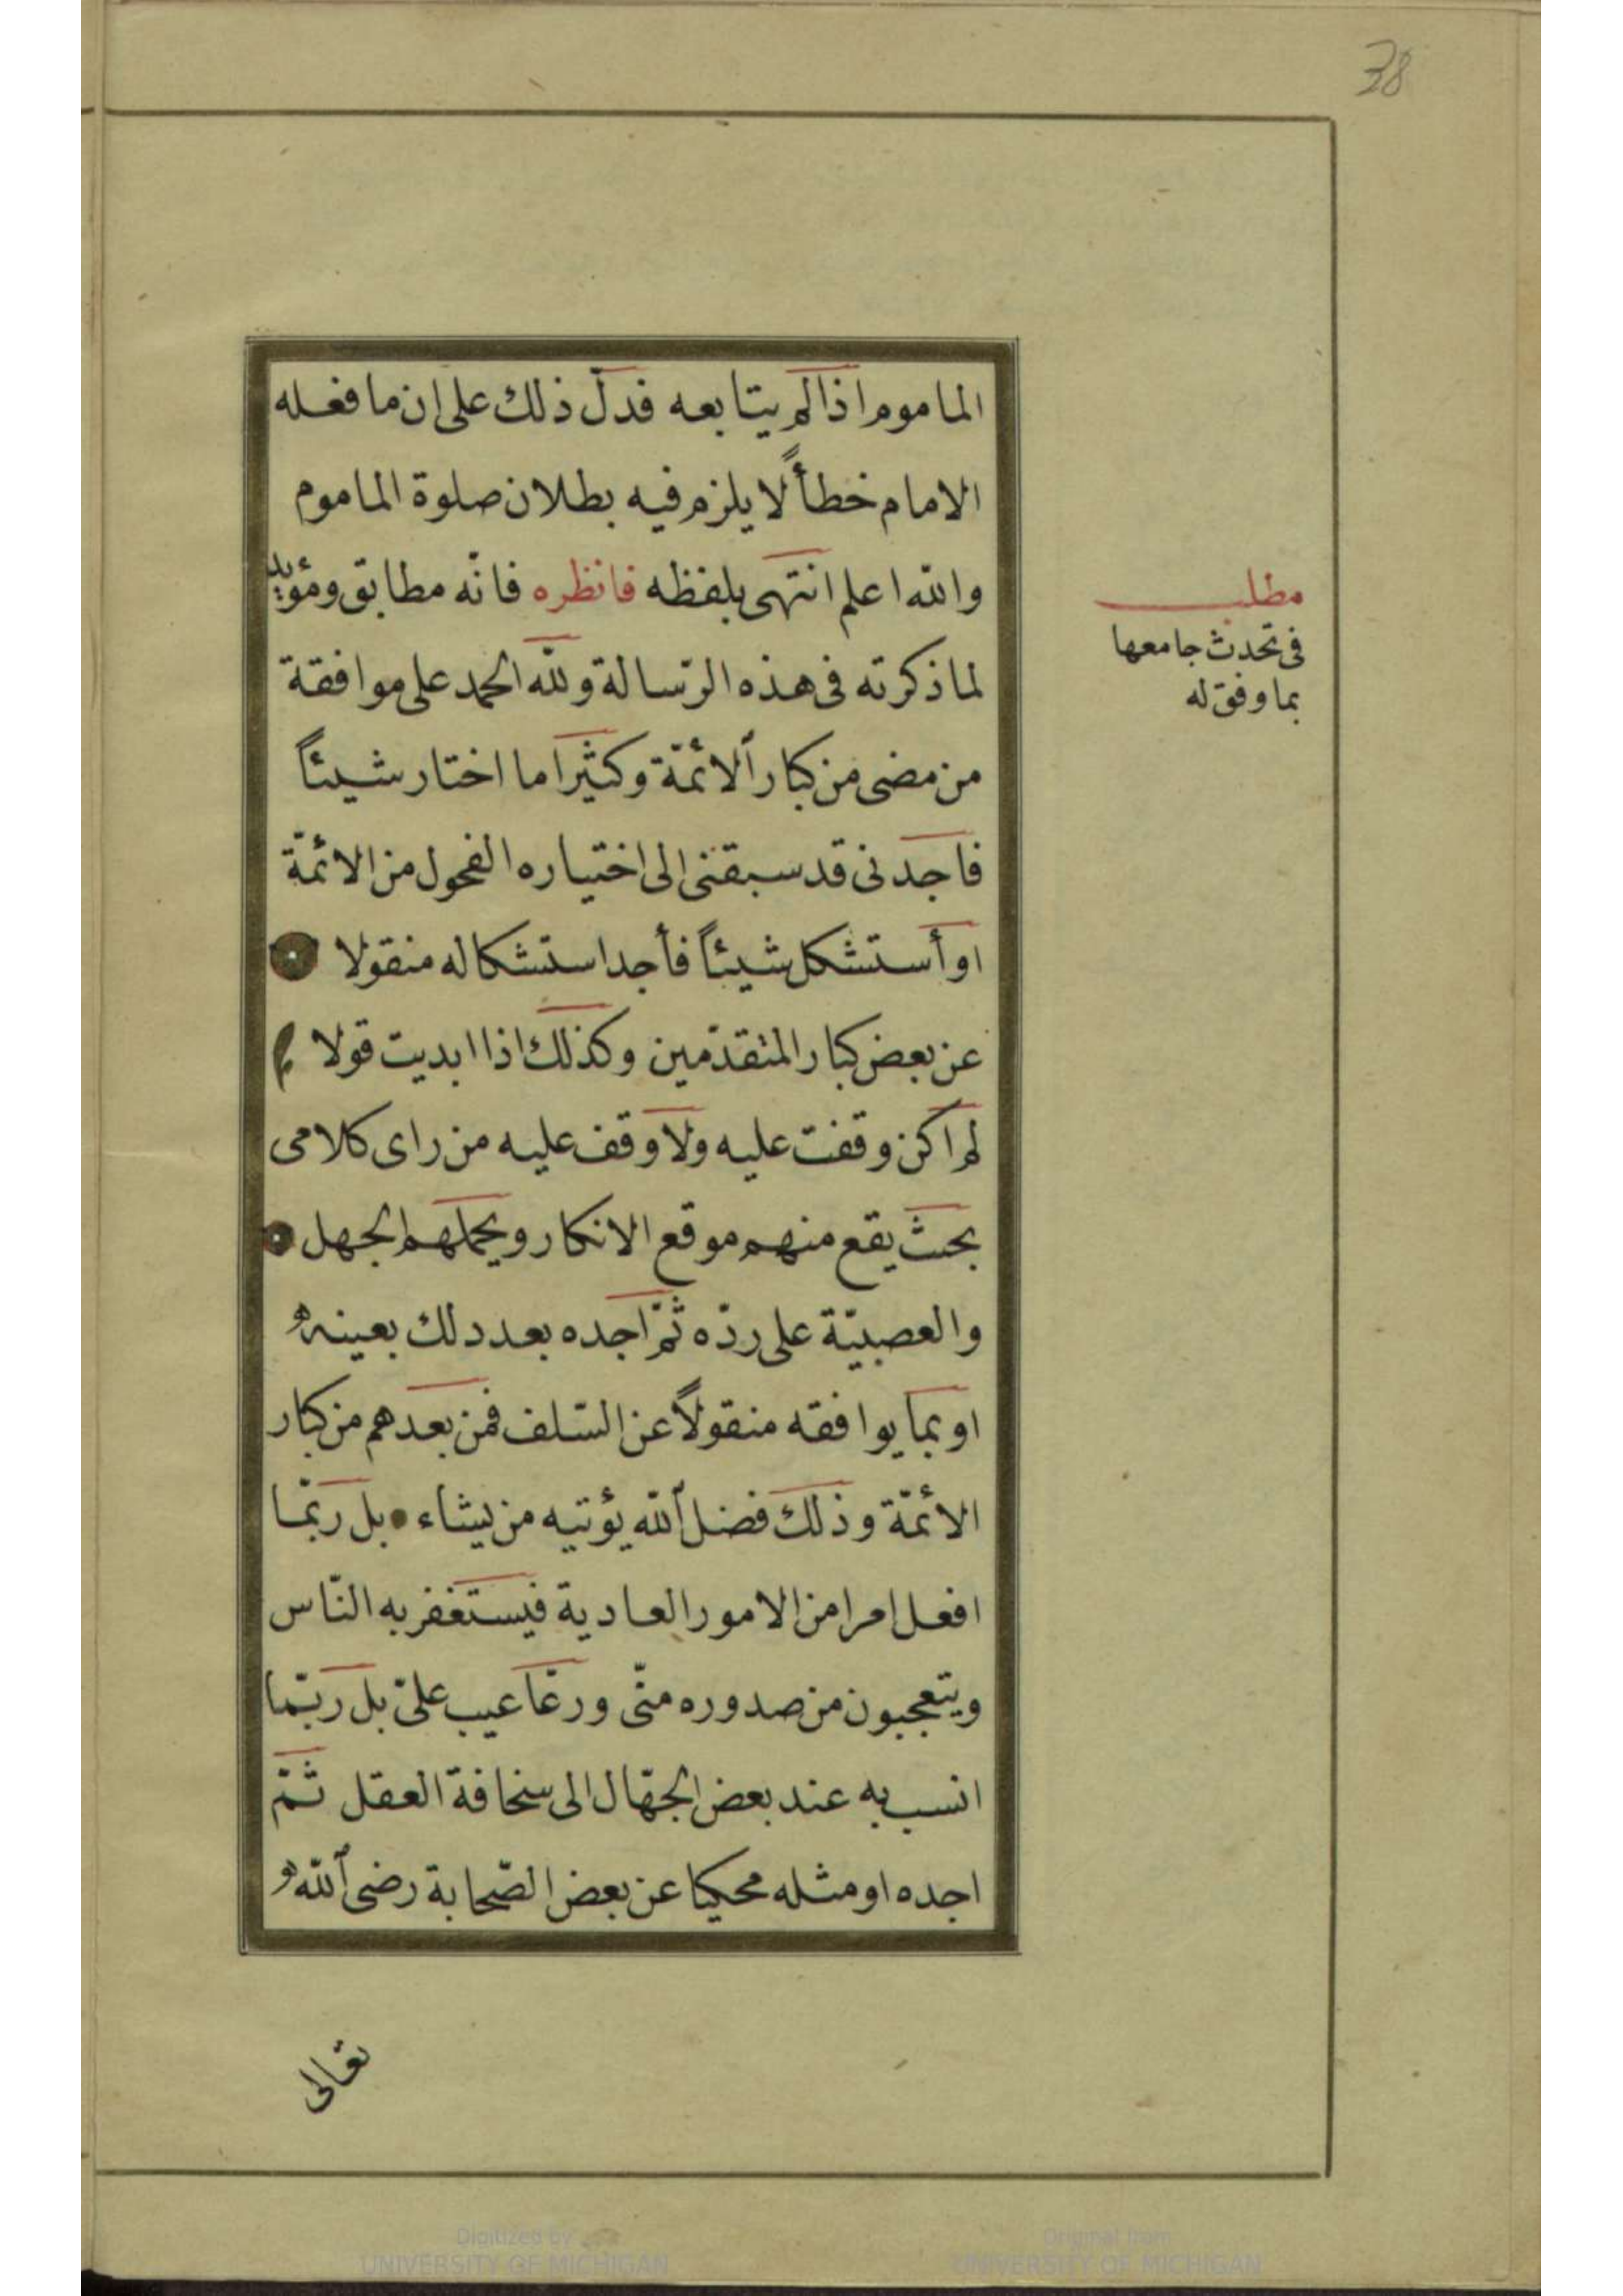 38
الماموم اذا لم يتابعه فدلّ ذلك على ان ما فعله
الامام خطأً لا يلزم فيه بطلان صلوة الماموم
والله اعلم انتهى بلفظه فانظره فانّه مطابق ومؤيد
لما ذكرته فى هذه الرّسالة ولله الحمد على موافقة
من مضى من كبار الأئمّة وكثيرا ما اختار شيئاً
فاجدنى قد سبقنى الى اختياره الفحول من الائمّة
او أستشكل شيئاً فأجد استشكاله منقولا
عن بعض كبار المتقدّمين وكذلك اذا ابديت قولا
لم اكن وقفت عليه ولا وقف عليه من راى كلامى
بحث يقع منهم موقع الانكار ويحملهم الجهل
والعصبيّة على ردّه ثمّ اجده بعد دلك بعينه
او بما يوافقه منقولاً عن السّلف فمن بعدهم من كبار
الأئمّة وذلك فضل الله يؤتيه من يشاء بل ربّما
افعل امرا من الامور العادية فيستغفر به النّاس
ويتعجبون من صدوره منّى ورغا عيب علىّ بل ربّما
انسب به عند بعض الجهّال الى سخافة العقل ثمّ
اجده او مثله محكيا عن بعض الصّحابة رضى الله
تعالى
مطلب
فى تحدث جامعها
بما وفق له
Digitized by
UNIVERSITY OF MICHIGAN
Original from
UNIVERSITY OF MICHIGAN